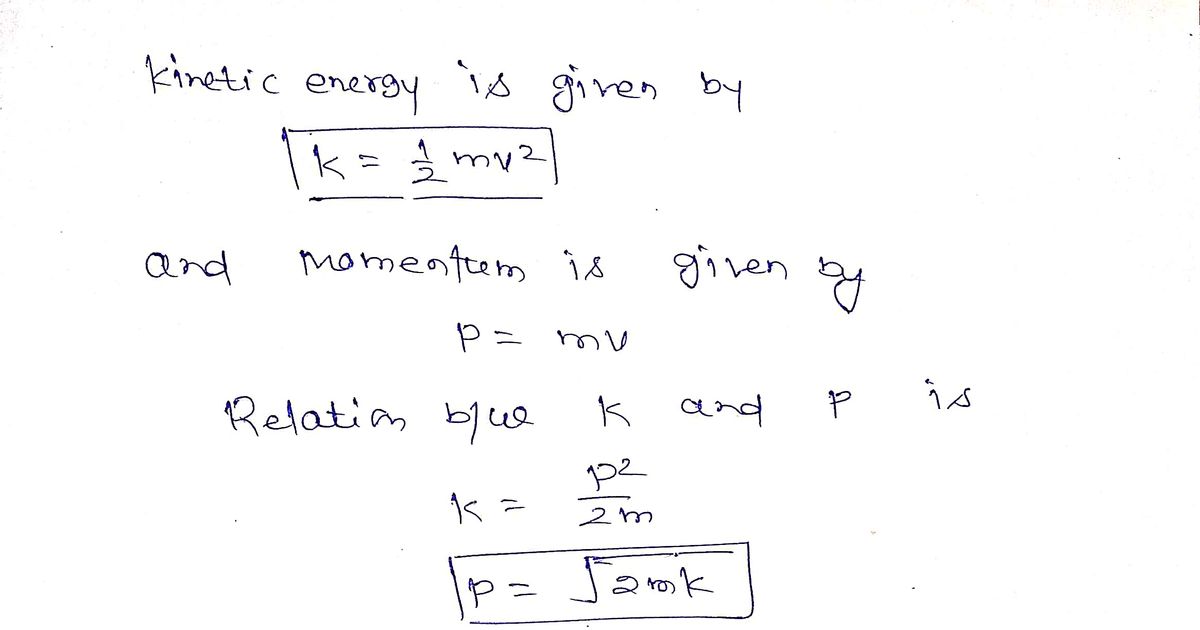 kinetic energy is given by
k = 1/2 mv²
and momentum is given by
p = mv
Relation b/w k and p is
k = p²/2m
p = √2mk